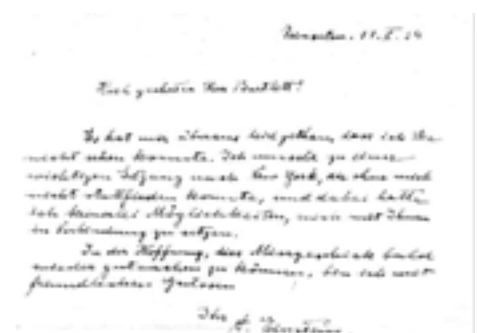 Princeton. 11. I. 34
Hoch geehrter Herr Bartlett!
Es hat mir überaus leid gethan, dass ich Sie
nicht sehen konnte. Ich musste zu einer
wichtigen Sitzung nach New York, die ohne mich
nicht stattfinden konnte, und dabei hatte
ich keinerlei Möglichkeiten, mich mit Ihnen
in Verbindung zu setzen.
In der Hoffnung, dies Missgeschick bald
wieder gutmachen zu können, bin ich mit
freundlichen Grüssen
Ihr A. Einstein